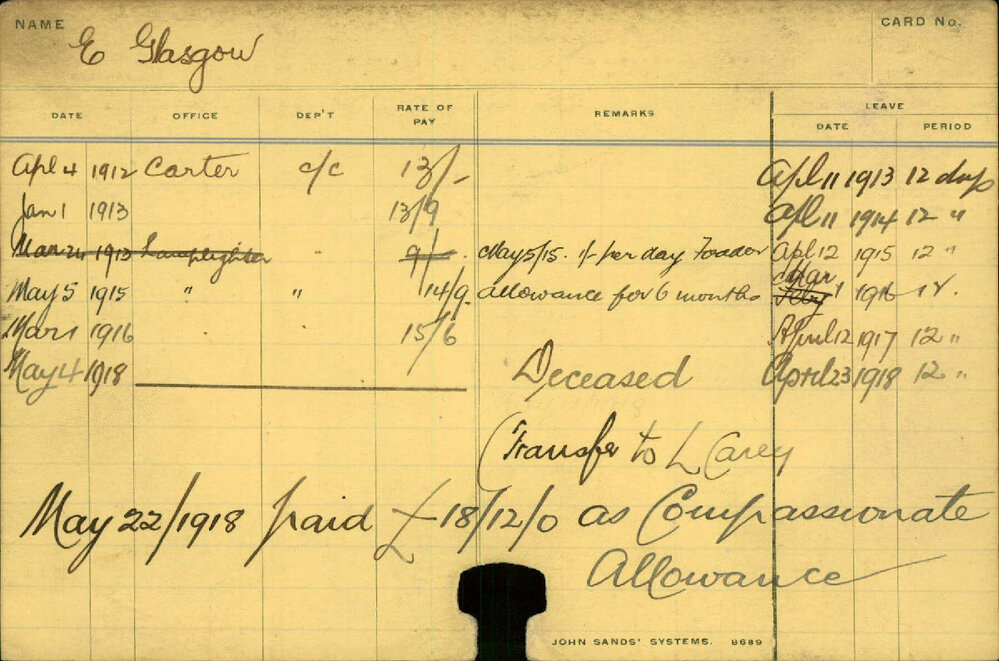 NAME E Glasgow CARD No.
DATE OFFICE DEP'T RATE OF PAY REMARKS LEAVE
DATE PERIOD
Apl 4 1912 Carter c/c 13/- Apl 11 1913 12 days
Jan 1 1913 13/9 Apl 11 1914 12 "
Mar 24 1913 Lamplighter " 9/- May 5/15. 1/- per day Fodder Apl 12 1915 12 "
May 5 1915 " " 14/9. allowance for 6 months Mar 1 1916 12.
Mar 1 1916 " " 15/6 April 12 1917 12 "
May 4 1918 Deceased April 23 1918 12 "
(Transfer to L Carey
May 22/1918 paid £18/12/0 as Compassionate
Allowance
JOHN SANDS' SYSTEMS. 8689